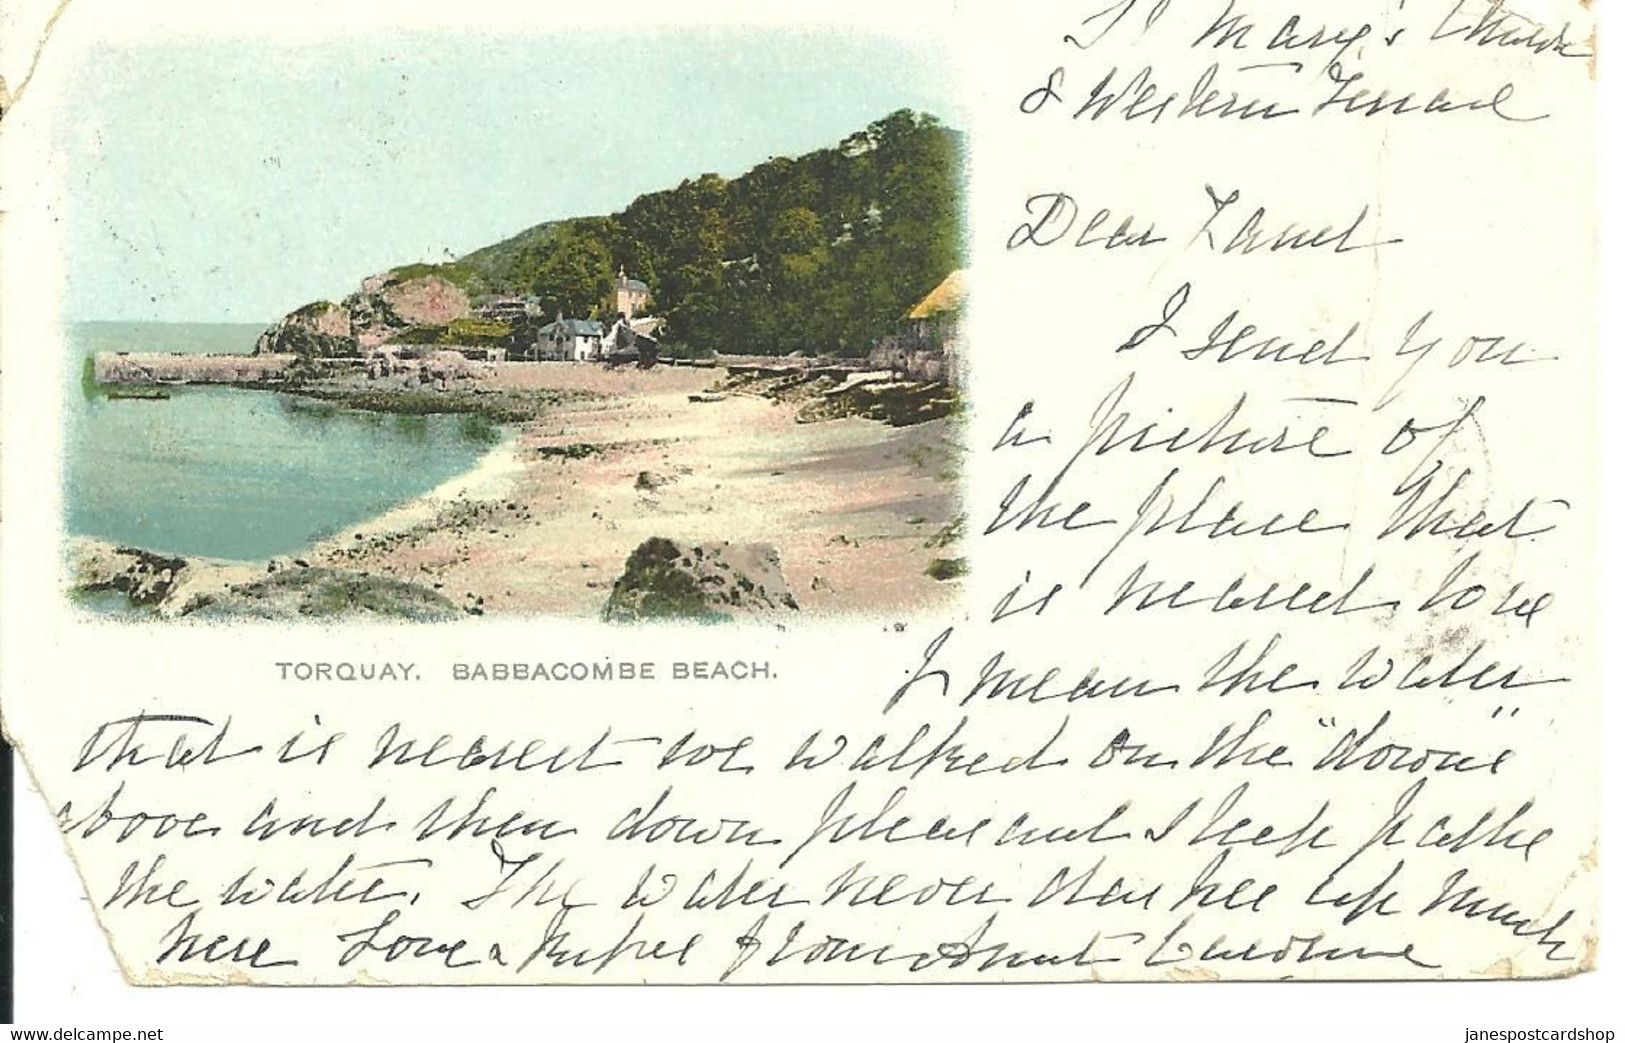 St Mary's Church
8 Western Terrace
Dear
I send you
a picture of
the place that
is nearest to us
I mean the water
that is nearest we walked on the "downs"
above and then down pleasant steep paths
the water. The water never dashes up much
here Love & from Aunt Caroline
TORQUAY. BABBACOMBE BEACH.
www.delcampe.net
janespostcardshop